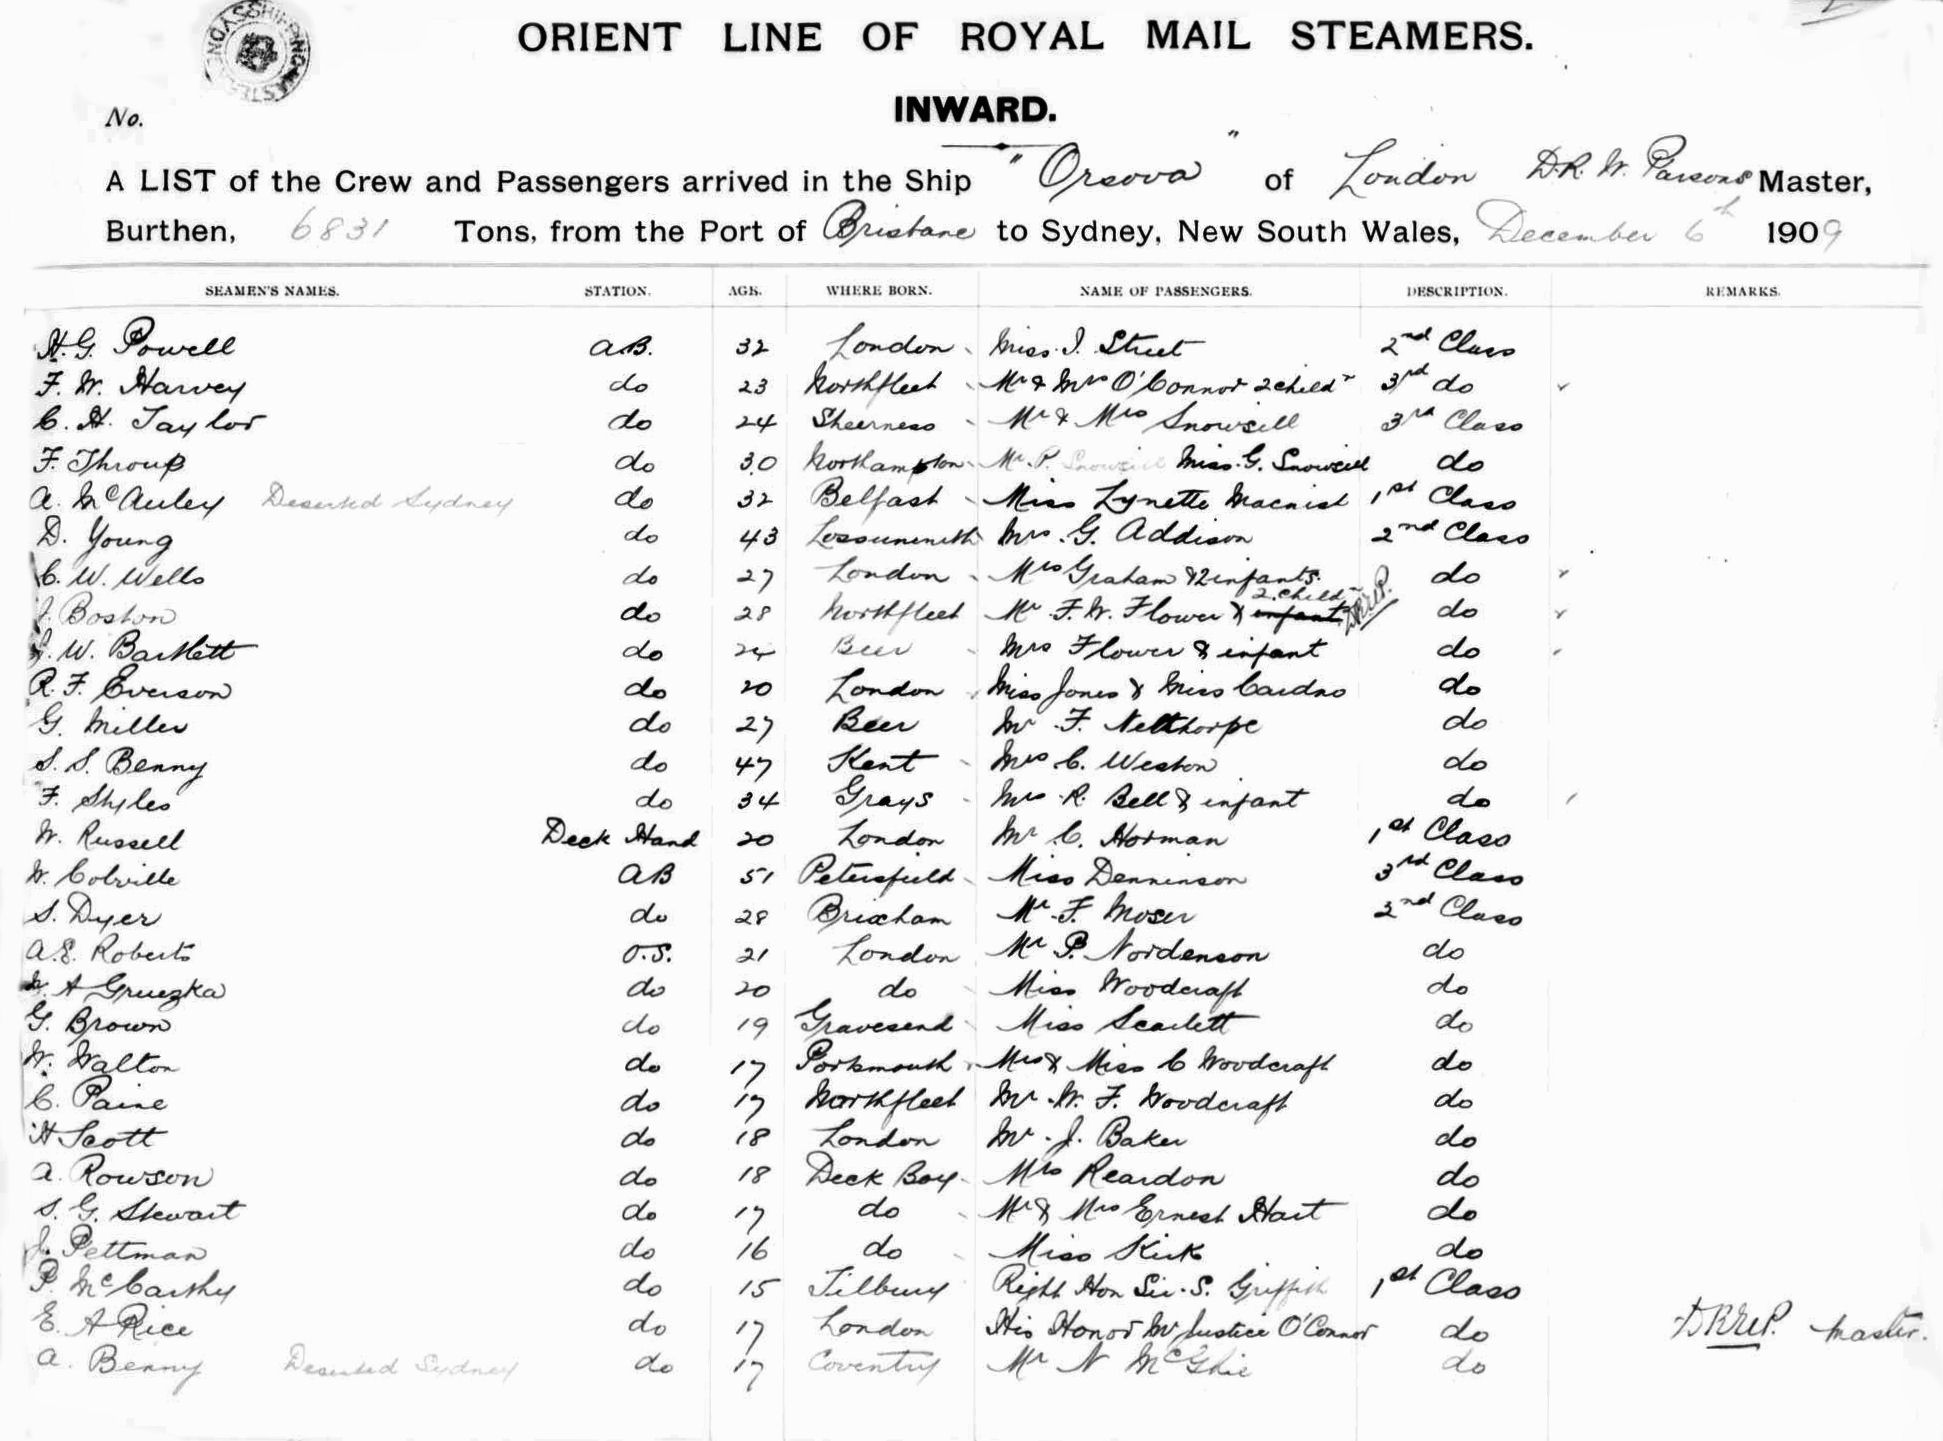 SHIPPING MASTER SYDNEY
ORIENT LINE OF ROYAL MAIL STEAMERS.
No.
INWARD.
A LIST of the Crew and Passengers arrived in the Ship "Orsova" of London D.R.W. Parsons Master,
Burthen, 6831 Tons, from the Port of Brisbane to Sydney, New South Wales, December 6th 1909
SEAMEN'S NAMES. STATION. AGE. WHERE BORN. NAME OF PASSENGERS. DESCRIPTION. REMARKS.
H. G. Powell A.B. 32 London Miss I. Street 2nd Class
F. W. Harvey do 23 Northfleet Mr & Mrs O'Connor 2 childn 3rd do
C. H. Taylor do 24 Sheerness Mr & Mrs Snowsill 3rd Class
F. Throup do 30 Northampton Mr. P. Snowsill Miss. G. Snowsill do
A. McAuley Deserted Sydney do 32 Belfast Miss Lynette 1st Class
D. Young do 43 Mrs. G. Addison 2nd Class
C. W. Wells do 27 London Mrs Graham & 2 infants. do
J. Boston do 28 Northfleet Mr F. W. Flower & infant 2 childn D.R.W.P. do
W. Bartlett do 24 Beer Mrs Flower & infant do
R. F. Everson do 20 London Miss Jones & Miss Cardno do
G. Miller do 27 Beer Mr F. Nelthorpe do
S. S. Benny do 47 Kent Mrs C. Weston do
F. Styles do 34 Grays Mrs R. Bell & infant do
W. Russell Deck Hand 20 London Mr C. Horman 1st Class
W. Colville AB 51 Petersfield Miss Denninson 3rd Class
S. Dyer do 28 Brixham Mr F. Moser 2nd Class
A. E. Roberts O.S. 21 London Mr P. Nordenson do
A Gruezka do 20 do Miss Woodcraft do
G. Brown do 19 Gravesend Miss Scarlett do
W. Walton do 17 Portsmouth Mrs & Miss C Woodcraft do
C. Paine do 17 Northfleet Mr. W. F. Woodcraft do
H Scott do 18 London Mr. J. Baker do
A. Rowson do 18 Deck Boy Mrs Reardon do
S. G. Stewart do 17 do Mr & Mrs Ernest Hart do
J. Pettman do 16 do Miss Kirk do
P. McCarthy do 15 Tilbury Right Hon Sir. S. Griffith 1st Class
E. A Rice do 17 London His Honor Mr Justice O'Connor do D.R.W.P. Master.
A. Benny Deserted Sydney do 17 Coventry Mr N McGhie do